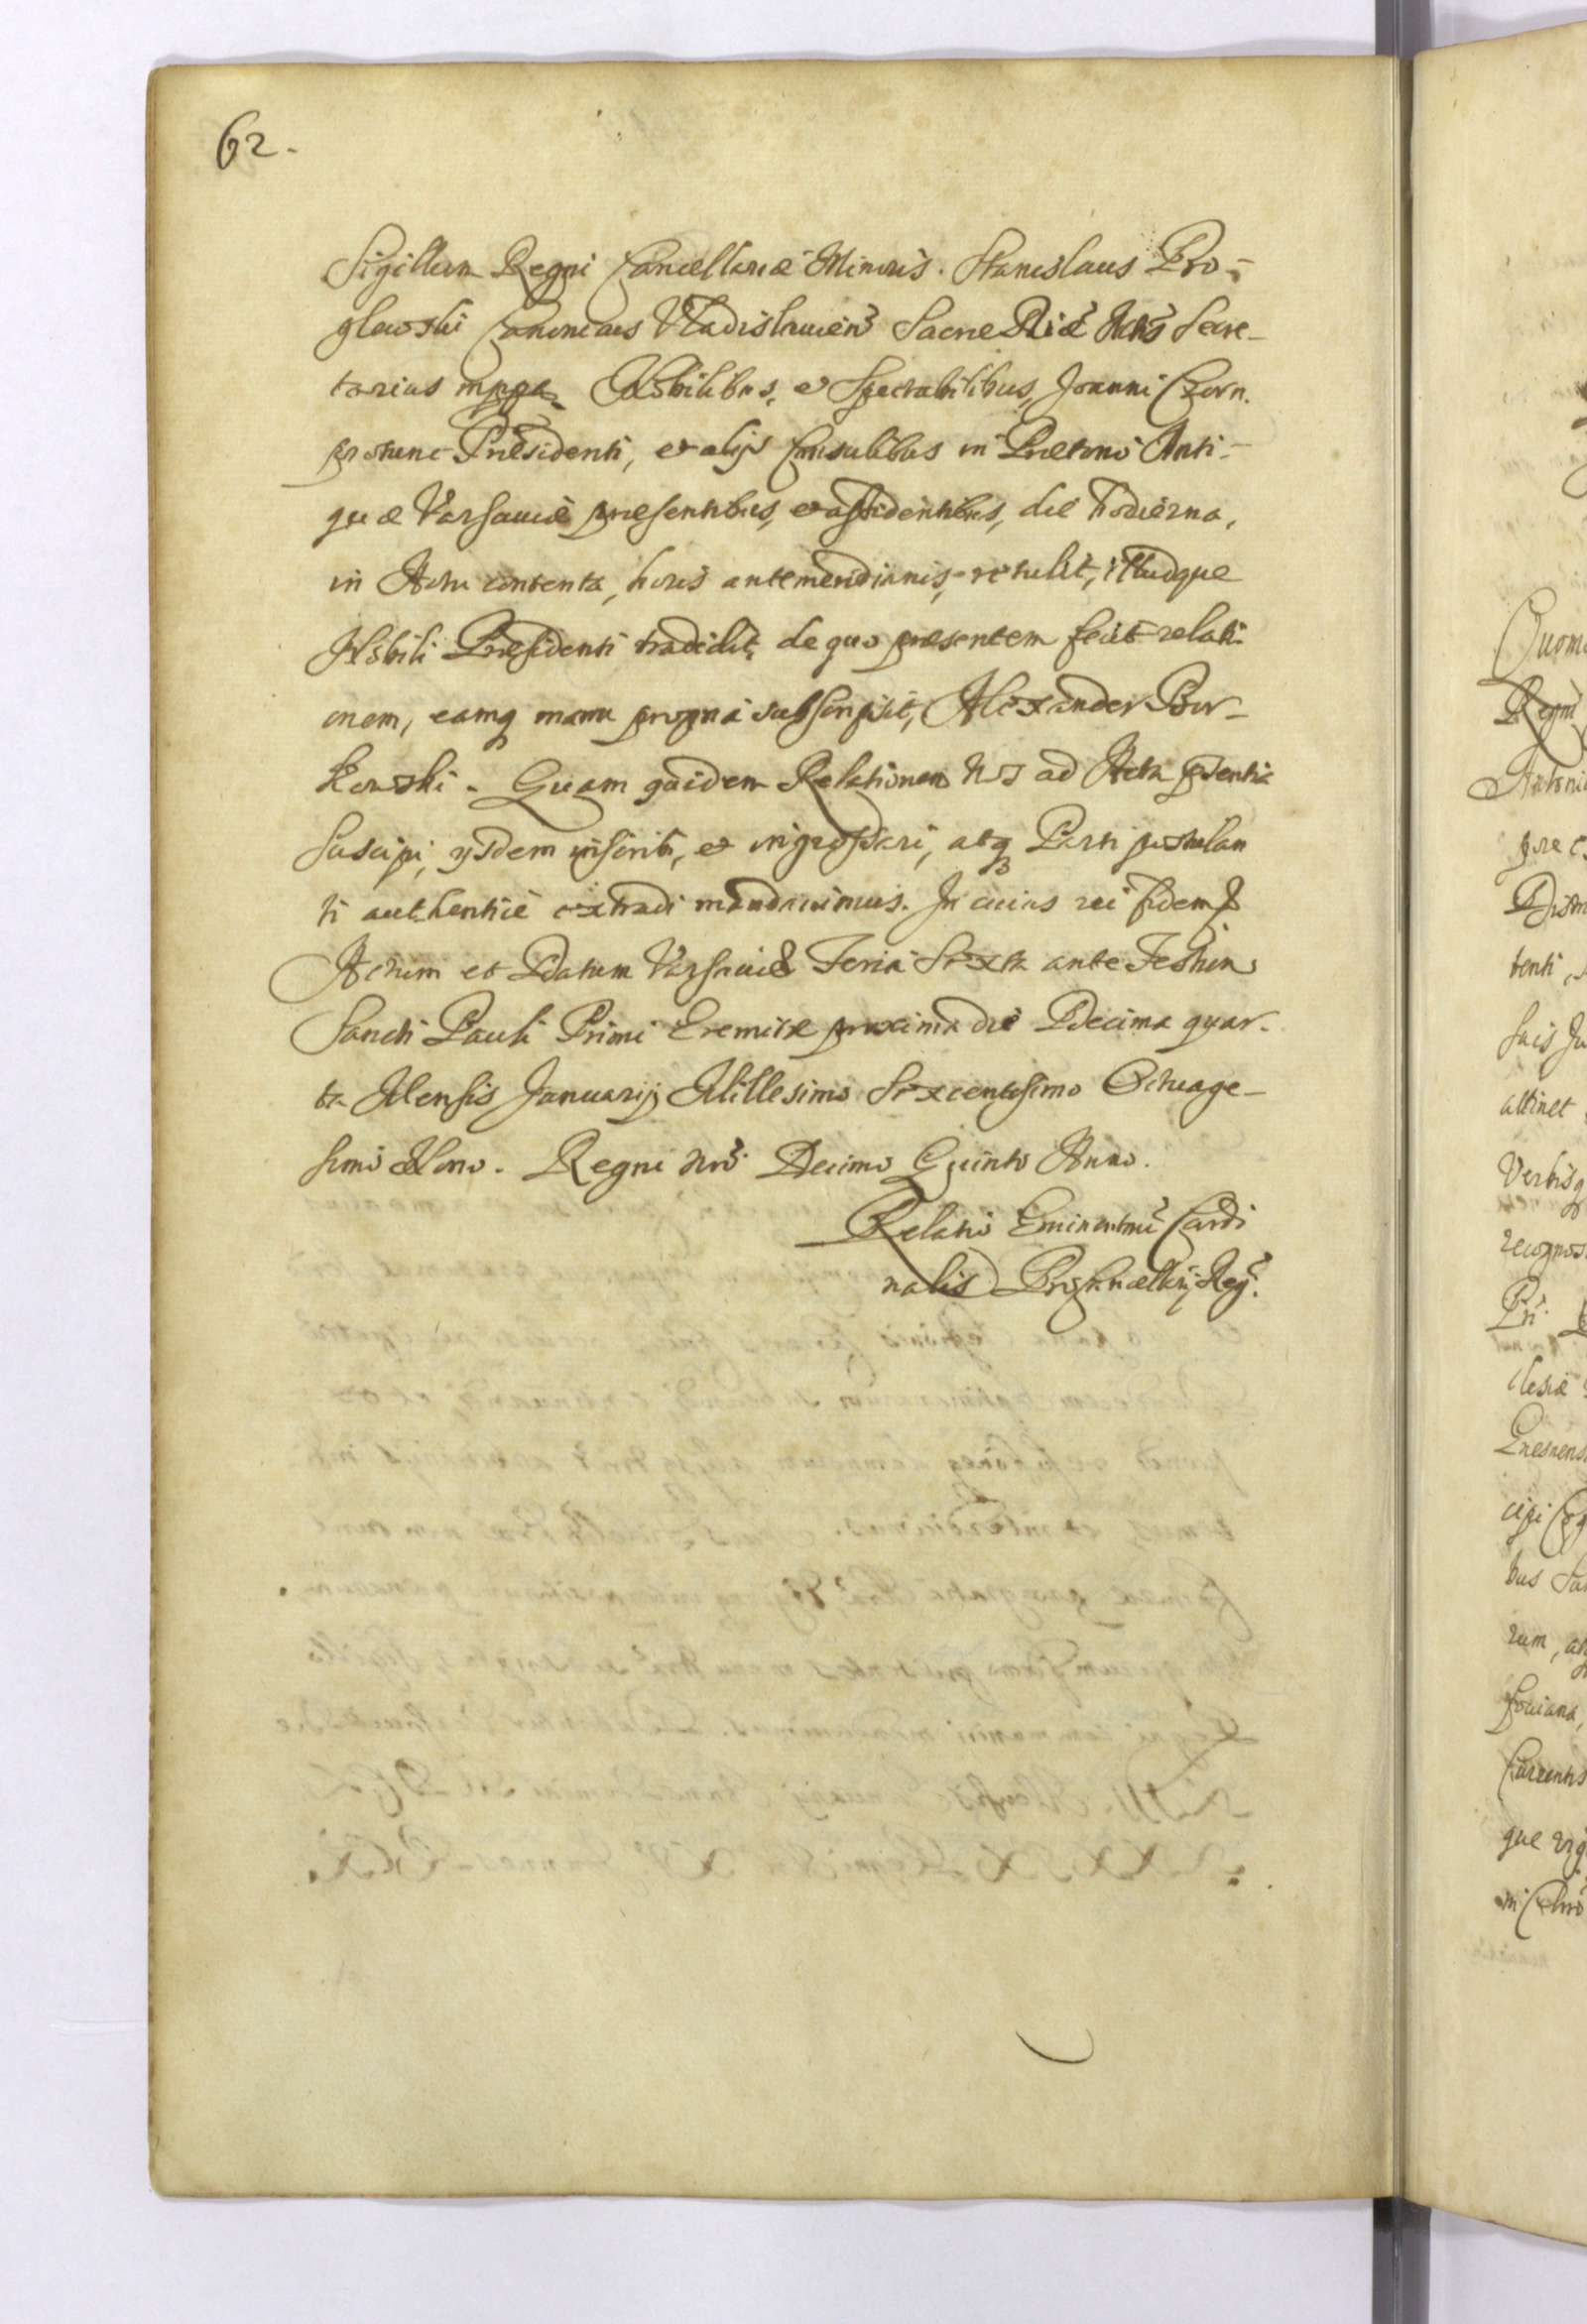 62.
Sigillum Regni Cancellariæ Minoris. Stanislaus Bro-
glowski Canonicus Vladislauien̄ Sacræ Riæ Mtis Secre-
tarius mppa. Nobilibus, et Spectabilibus, Joanni Czorn.
protunc Præsidenti, et alijs Consulibus in Prætorio Anti-
quæ Varsauiæ præsentibus, et assidentibus, die hodierna,
in Actu contenta, horis antemeridianis, retulit, illudque
Nobili Præsidenti tradidit, de quo præsentem fecit relati
onem, eamq manu propria subscripsit, Alexander Bor-
kowski. Quam quidem Relationem Nos ad Acta pn̄tia
suscipi, ijsdem inscribi, et ingrossari, atq Parti postulan
ti authenticè extradi mandauimus. In cuius rei fidem &
Actum et Datum Varsauiæ Feria Sexta ante Festum
Sancti Pauli Primi Eremitæ proxima die Decima quar-
ta Mensis Januarij Millesimo Sexcentesimo Octuage-
simo Nono. Regni Nrī Decimo Quinto Anno.
Relatio Eminentmī Cardi
nalis Procancellarij Regī.